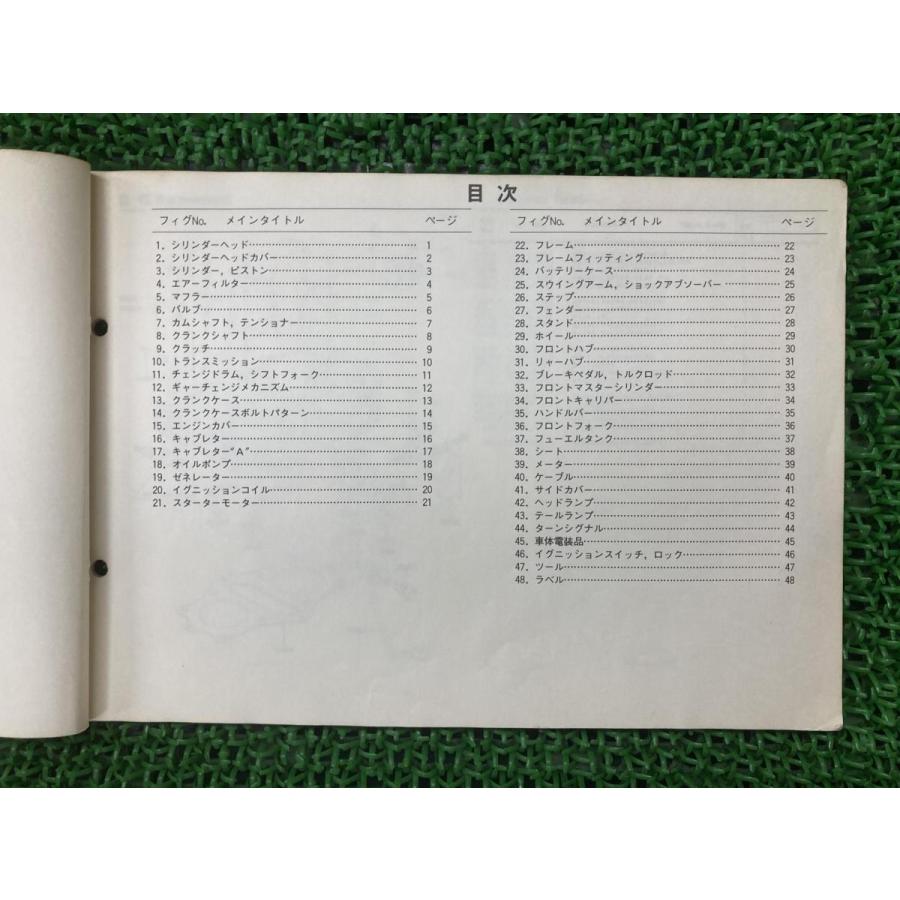 目次
フィグNo. メインタイトル ページ
1. シリンダーヘッド 1
2. シリンダーヘッドカバー 2
3. シリンダー, ピストン 3
4. エアーフィルター 4
5. マフラー 5
6. バルブ 6
7. カムシャフト, テンショナー 7
8. クランクシャフト 8
9. クラッチ 9
10. トランスミッション 10
11. チェンジドラム, シフトフォーク 11
12. ギャーチェンジメカニズム 12
13. クランクケース 13
14. クランクケースボルトパターン 14
15. エンジンカバー 15
16. キャブレター 16
17. キャブレター"A" 17
18. オイルポンプ 18
19. ゼネレーター 19
20. イグニッションコイル 20
21. スターターモーター 21
フィグNo. メインタイトル ページ
22. フレーム 22
23. フレームフィッティング 23
24. バッテリーケース 24
25. スウイングアーム, ショックアブソーバー 25
26. ステップ 26
27. フェンダー 27
28. スタンド 28
29. ホイール 29
30. フロントハブ 30
31. リャーハブ 31
32. ブレーキペダル, トルクロッド 32
33. フロントマスターシリンダー 33
34. フロントキャリパー 34
35. ハンドルバー 35
36. フロントフォーク 36
37. フューエルタンク 37
38. シート 38
39. メーター 39
40. ケーブル 40
41. サイドカバー 41
42. ヘッドランプ 42
43. テールランプ 43
44. ターンシグナル 44
45. 車体電装品 45
46. イグニションスイッチ, ロック 46
47. ツール 47
48. ラベル 48